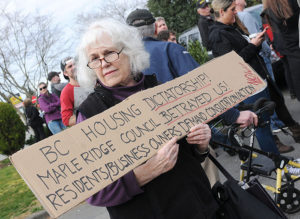 BC HOUSING DICTATORSHIP!
MAPLE RIDGE COUNCIL BETRAYED US!
RESIDENTS/BUSINESS OWNERS DEMAND CONSIDERATION